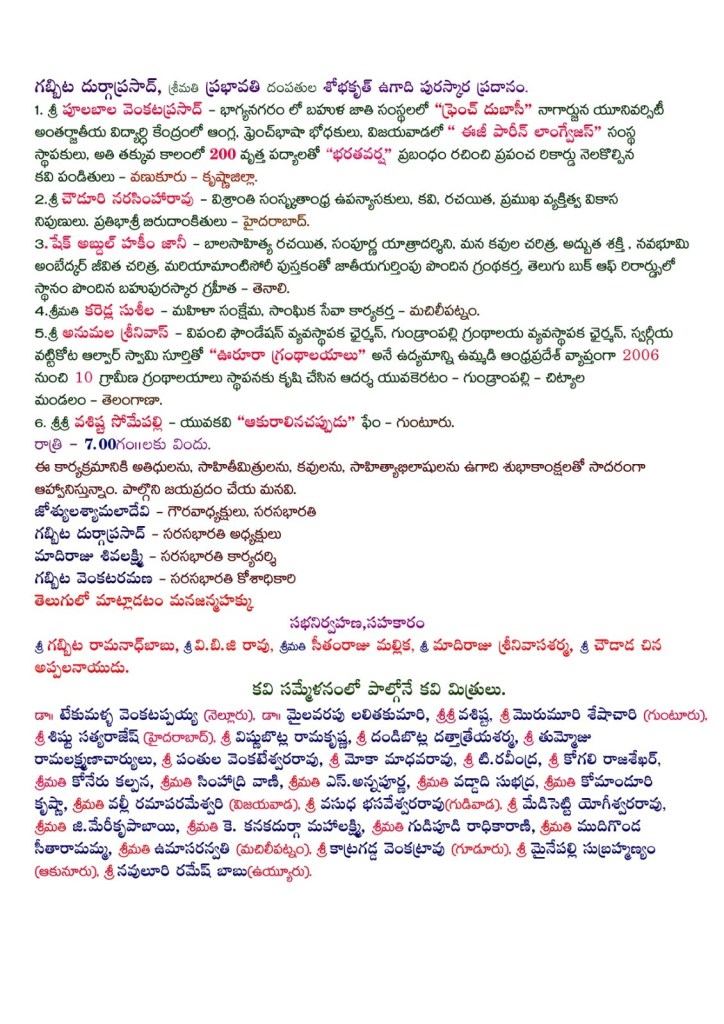 గబ్బిట దుర్గాప్రసాద్, శ్రీమతి ప్రభావతి దంపతుల శోభకృత్ ఉగాది పురస్కార ప్రదానం.
1. శ్రీ పూలబాల వెంకటప్రసాద్ - భాగ్యనగరం లో బహుళ జాతి సంస్థలలో "ఫ్రెంచ్ దుబాసీ" నాగార్జున యూనివర్సిటీ
అంతర్జాతీయ విద్యార్థి కేంద్రంలో ఆంగ్ల, ఫ్రెంచ్‌భాషా భోధకులు, విజయవాడలో " ఈజీ పారీన్ లాంగ్వేజస్" సంస్థ
స్థాపకులు, అతి తక్కువ కాలంలో 200 వృత్త పద్యాలతో "భరతవర్ష" ప్రబంధం రచించి ప్రపంచ రికార్డు నెలకొల్పిన
కవి పండితులు - వణుకూరు - కృష్ణాజిల్లా.
2.శ్రీ చౌడూరి నరసింహారావు - విశ్రాంతి సంస్కృతాంధ్ర ఉపన్యాసకులు, కవి, రచయిత, ప్రముఖ వ్యక్తిత్వ వికాస
నిపుణులు. ప్రతిభాశ్రీ బిరుదాంకితులు - హైదరాబాద్.
3.షేక్ అబ్దుల్ హకీం జానీ - బాలసాహిత్య రచయిత, సంపూర్ణ యాత్రాదర్శిని, మన కవుల చరిత్ర, అద్భుత శక్తి , నవభూమి
అంబేద్కర్ జీవిత చరిత్ర, మరియామాంటిసోరీ పుస్తకంతో జాతీయగుర్తింపు పొందిన గ్రంథకర్త, తెలుగు బుక్ ఆఫ్ రిరార్డ్సులో
స్థానం పొందిన బహుపురస్కార గ్రహీత - తెనాలి.
4.శ్రీమతి కరెడ్ల సుశీల - మహిళా సంక్షేమ, సాంఘిక సేవా కార్యకర్త - మచిలీపట్నం.
5.శ్రీ అనుమల శ్రీనివాస్ - విపంచి ఫౌండేషన్ వ్యవస్థాపక ఛైర్మన్, గుండ్రాంపల్లి గ్రంథాలయ వ్యవస్థాపక ఛైర్మన్, స్వర్గీయ
వట్టికోట ఆల్వార్ స్వామి సూర్తితో "ఊరూరా గ్రంథాలయాలు" అనే ఉద్యమాన్ని ఉమ్మడి ఆంధ్రప్రదేశ్ వ్యాప్తంగా 2006
నుంచి 10 గ్రామీణ గ్రంథాలయాలు స్థాపనకు కృషి చేసిన ఆదర్శ యువకెరటం - గుండ్రాంపల్లి - చిట్యాల
మండలం - తెలంగాణా.
6. శ్రీశ్రీ వశిష్ట సోమేపల్లి - యువకవి "ఆకురాలినచప్పుడు" ఫేం - గుంటూరు.
రాత్రి - 7.00గం॥లకు విందు.
ఈ కార్యక్రమానికి అతిధులను, సాహితీమిత్రులను, కవులను, సాహిత్యాభిలాషులను ఉగాది శుభాకాంక్షలతో సాదరంగా
ఆహ్వానిస్తున్నాం. పాల్గొని జయప్రదం చేయ మనవి.
జోశ్యులశ్యామలాదేవి - గౌరవాధ్యక్షులు, సరసభారతి
గబ్బిట దుర్గాప్రసాద్ - సరసభారతి అధ్యక్షులు
మాదిరాజు శివలక్ష్మి - సరసభారతి కార్యదర్శి
గబ్బిట వెంకటరమణ - సరసభారతి కోశాధికారి
తెలుగులో మాట్లాడటం మనజన్మహక్కు
సభనిర్వహణ,సహకారం
శ్రీ గబ్బిట రామనాధ్‌బాబు, శ్రీ వి.బి.జి రావు, శ్రీమతి సీతంరాజు మల్లిక, శ్రీ మాదిరాజు శ్రీనివాసశర్మ, శ్రీ చౌదాడ చిన
అప్పలనాయుడు.
కవి సమ్మేళనంలో పాల్గోనే కవి మిత్రులు.
డా॥ టేకుమళ్ళ వెంకటప్పయ్య (నెల్లూరు), డా॥ మైలవరపు లలితకుమారి, శ్రీశ్రీ వశిష్ట, శ్రీ మొరుమూరి శేషాచారి (గుంటూరు),
శ్రీ శిష్టు సత్యరాజేష్ (హైదరాబాద్), శ్రీ విష్ణుబొట్ల రామకృష్ణ, శ్రీ దండిబొట్ల దత్తాత్రేయశర్మ, శ్రీ తుమ్మోజు
రామలక్ష్మణాచార్యులు, శ్రీ పంతుల వెంకటేశ్వరరావు, శ్రీ మోకా మాధవరావు, శ్రీ టి.రవీంద్ర, శ్రీ కోగలి రాజశేఖర్,
శ్రీమతి కోనేరు కల్పన, శ్రీమతి సింహాద్రి వాణి, శ్రీమతి ఎస్.అన్నపూర్ణ, శ్రీమతి వడ్డాది సుభద్ర, శ్రీమతి కోమాండూరి
కృష్ణా, శ్రీమతి వల్లీ రమాపరమేశ్వరి (విజయవాడ), శ్రీ వసుధ భసవేశ్వరరావు(గుడివాడ), శ్రీ మేడిసెట్టి యోగీశ్వరరావు,
శ్రీమతి జి.మేరీకృపాబాయి, శ్రీమతి కె. కనకదుర్గా మహాలక్ష్మి, శ్రీమతి గుడిపూడి రాధికారాణి, శ్రీమతి ముదిగొండ
సీతారామమ్మ, శ్రీమతి ఉమాసరస్వతి (మచిలీపట్నం), శ్రీ కాట్రగడ్డ వెంకట్రావు (గూడూరు), శ్రీ మైనేపల్లి సుబ్రహ్మణ్యం
(ఆకునూరు), శ్రీ నవులూరి రమేష్ బాబు(ఉయ్యూరు).